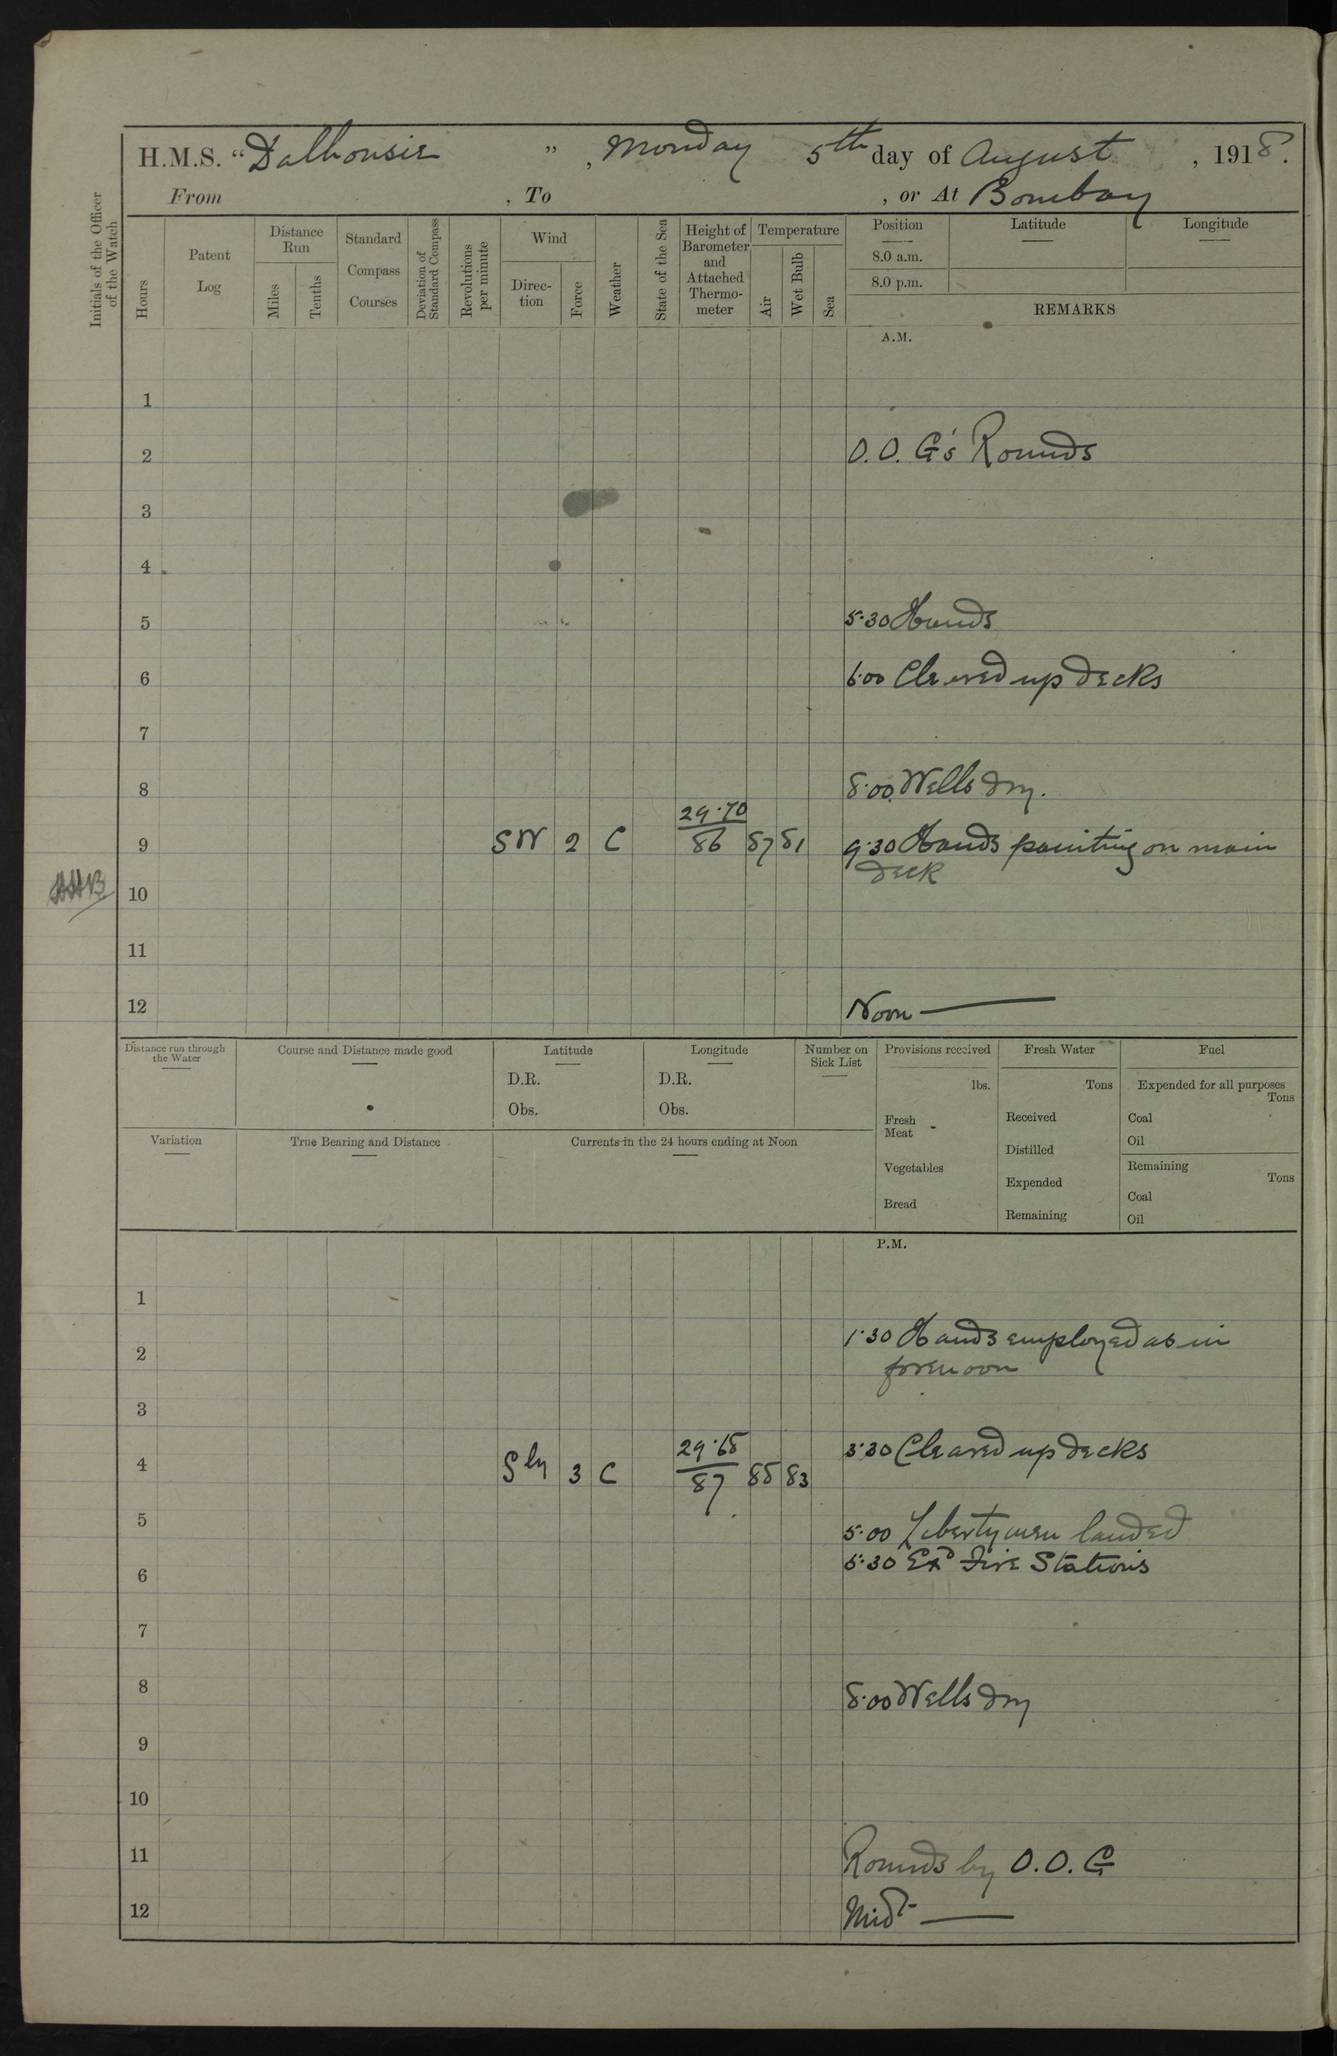 H.M.S. "Dalhousie ", Monday 5th day of August, 1918.
From , To , or At Bombay
Initials of the Officer of the Watch
Hours
Patent Log
Distance Run
Miles
Tenths
Standard Compass Courses
Deviation of Standard Compass
Revolutions per minute
Wind
Direc-tion
Force
Weather
State of the Sea
Height of Barometer and Attached Thermo-meter
Temperature
Air
Wet Bulb
Sea
Position
Latitude
Longitude
8.0 a.m.
8.0 p.m.
REMARKS
A.M.
1
2 O.O.G's Rounds
3
4
5 5·30 Hands
6 6·00 Cleared up decks
7
8 8·00 Wells dry.
29·70
9 SW 2 C 86 87 81 9·30 Hands painting on main
deck
10
11
12 Noon
Distance run through the Water
Course and Distance made good
Latitude
D.R.
Obs.
Longitude
D.R.
Obs.
Number on Sick List
Provisions received
lbs.
Fresh Meat -
Vegetables
Bread
Fresh Water
Tons
Received
Distilled
Expended
Remaining
Fuel
Expended for all purposes
Tons
Coal
Oil
Remaining
Tons
Coal
Oil
Variation
True Bearing and Distance
Currents in the 24 hours ending at Noon
P.M.
1
2 1·30 Hands employed as in
forenoon
3
29·65
4 Sly 3 C 87 85 83 3·30 Cleared up decks
5 5·00 Libertymen landed
6 5·30 Exd Fire Stations
7
8 8·00 Wells dry
9
10
11 Rounds by O.O.G
12 Midt